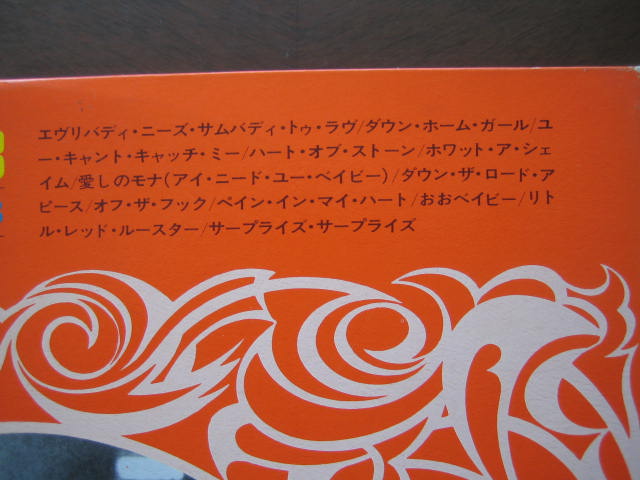 エヴリバディ・ニーズ・サムバディ・トゥ・ラヴ/ダウン・ホーム・ガール/ユ
ー・キャント・キャッチ・ミー/ハート・オブ・ストーン/ホワット・ア・シェ
イム/愛しのモナ(アイ・ニード・ユー・ベイビー)/ダウン・ザ・ロード・ア
ピース/オフ・ザ・フック/ペイン・イン・マイ・ハート/おおベイビー/リト
ル・レッド・ルースター/サープライズ・サープライズ